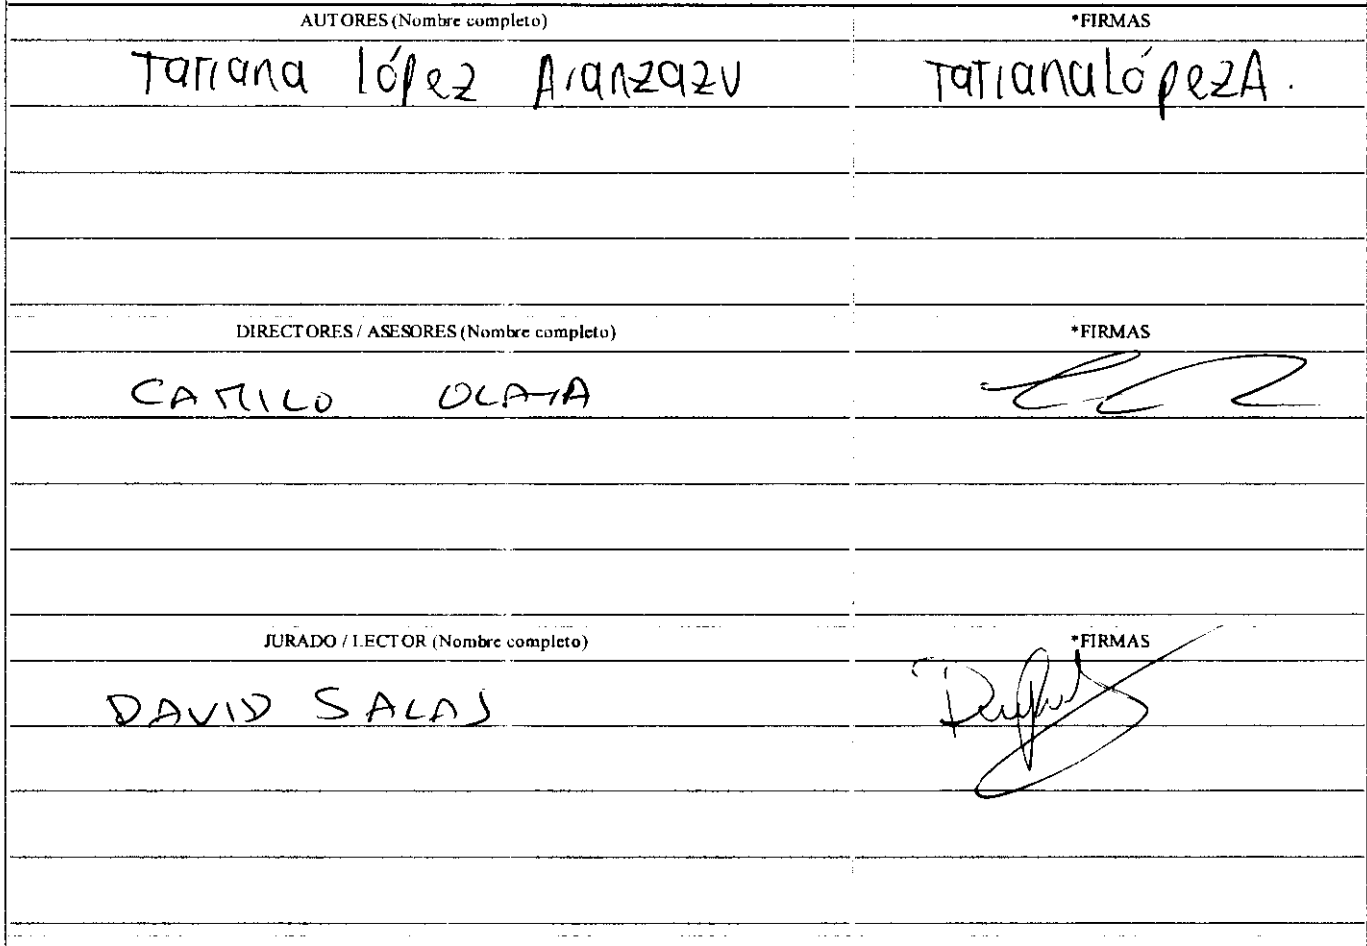 AUTORES (Nombre completo) *FIRMAS
Tatiana lópez Aranzazu Tatiana López A.
DIRECTORES / ASESORES (Nombre completo) *FIRMAS
CAMILO OLAYA
JURADO / LECTOR (Nombre completo) *FIRMAS
DAVID SALAS